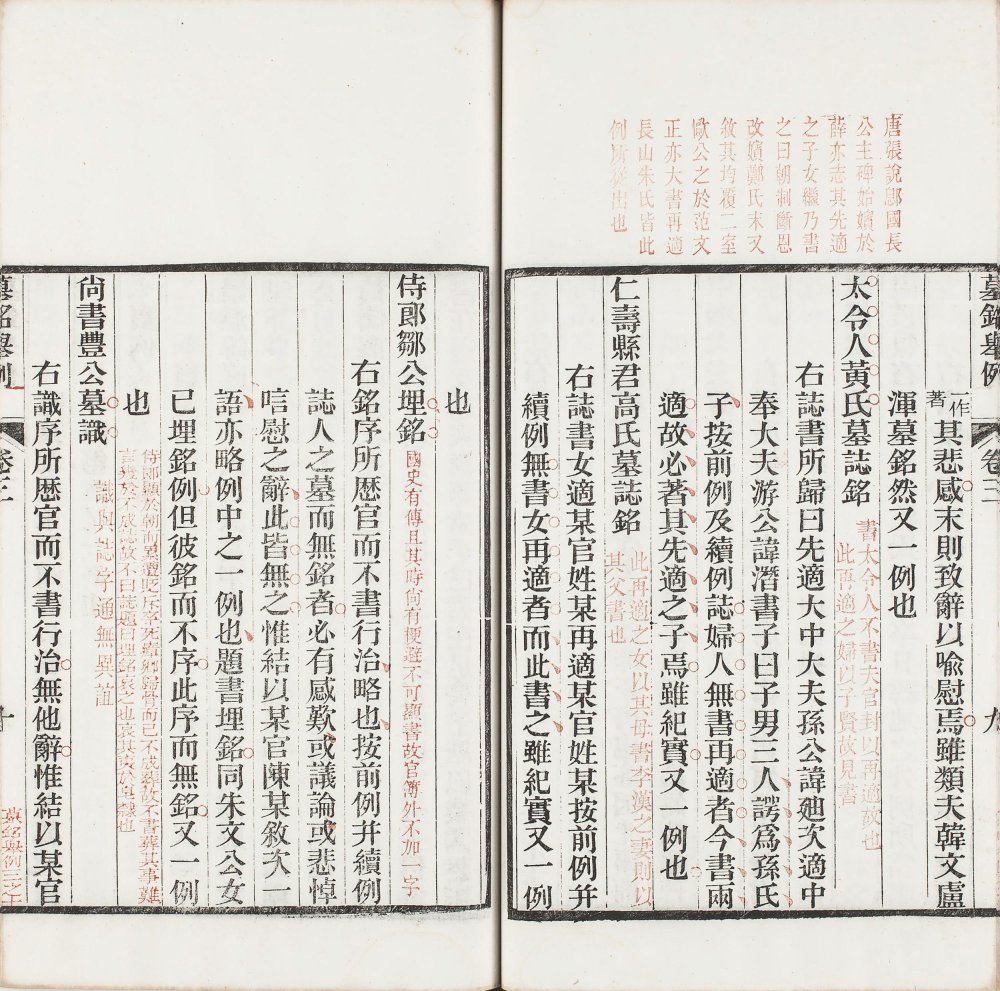 唐張說鄎國長
公主碑始嬪於
薛亦志其先適
之子女繼乃書
之曰朝制斷恩
改嬪鄭氏末又
敘其均養二室
歐公之於范文
正亦大書再適
長山朱氏皆此
例所從出也
墓銘舉例 卷三 九
一作著其悲感末則致辭以喻慰焉雖類夫韓文盧
渾墓銘然又一例也
太令人黃氏墓誌銘 書太令人不書夫官封以再適故也此再適之婦以子賢故見書
右誌書所歸曰先適大中大夫孫公諱廸次適中
奉大夫游公諱潛書子曰子男三人諤為孫氏
子按前例及續例誌婦人無書再適者今書兩
適故必著其先適之子焉雖紀實又一例也
仁壽縣君高氏墓誌銘 此再適之女以其母書李漢之妻則以其父書也
右誌書女適某官姓某再適某官姓某按前例并
續例無書女再適者而此書之雖紀實又一例
也
侍郎鄒公埋銘 國史有傳且其時尚有梗避不可顯書故官簿外不加一字
右銘序所歷官而不書行治略也按前例并續例
誌人之墓而無銘者必有感歎或議論或悲悼
唁慰之辭此皆無之惟結以某官陳某敘次一
語亦略例中之一例也題書埋銘同朱文公女
已埋銘例但彼銘而不序此序而無銘又一例
也 侍郎顯於朝而屢遭貶斥幸死續鄉歸骨而已不成葬故不書葬其事難言幾於不成誌故不曰誌題曰埋銘哀之也
尚書豐公墓識 識與誌字通無異誼
右識序所歷官而不書行治無他辭惟結以某官
墓銘舉例 卷三 十